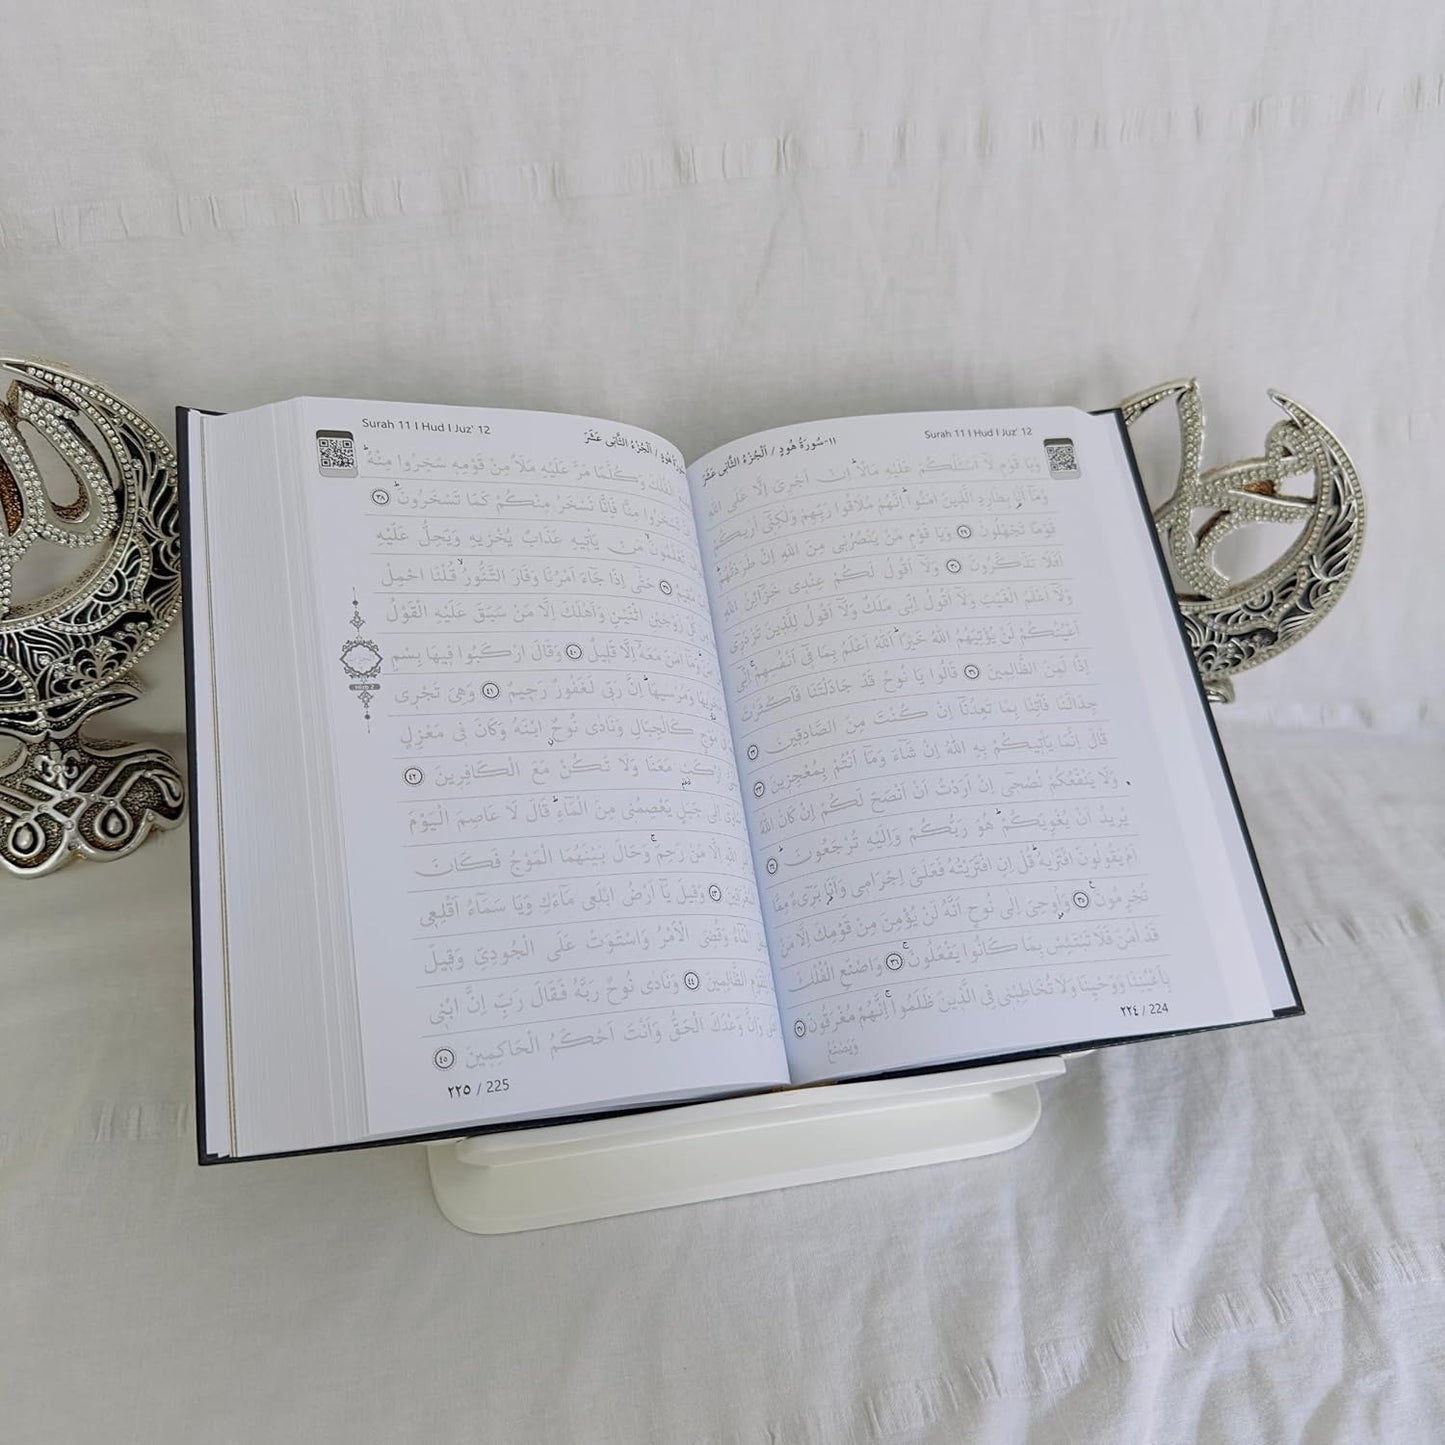 ١١-سُورَةُ هُودٍ / اَلْجُزْءُ الثَّانِى عَشَرَ Surah 11 I Hud I Juz' 12
وَيَا قَوْمِ لَٓا اَسْـَٔلُكُمْ عَلَيْهِ مَالًاۜ اِنْ اَجْرِىَ اِلَّا عَلَى اللّٰهِ
وَمَٓا اَنَا۬ بِطَارِدِ الَّذ۪ينَ اٰمَنُواۜ اِنَّهُمْ مُلَاقُوا رَبِّهِمْ وَلٰكِنّ۪ٓى اَرٰيكُمْ
قَوْمًا تَجْهَلُونَ ﴿٢٩﴾ وَيَا قَوْمِ مَنْ يَنْصُرُن۪ى مِنَ اللّٰهِ اِنْ طَرَدْتُهُمْۜ
اَفَلَا تَذَكَّرُونَ ﴿٣٠﴾ وَلَٓا اَقُولُ لَكُمْ عِنْد۪ى خَزَٓائِنُ اللّٰهِ
وَلَٓا اَعْلَمُ الْغَيْبَ وَلَٓا اَقُولُ اِنّ۪ى مَلَكٌ وَلَٓا اَقُولُ لِلَّذ۪ينَ تَزْدَر۪ٓى
اَعْيُنُكُمْ لَنْ يُؤْتِيَهُمُ اللّٰهُ خَيْرًاۜ اَللّٰهُ اَعْلَمُ بِمَا ف۪ٓى اَنْفُسِهِمْۚ اِنّ۪ٓى
اِذًا لَمِنَ الظَّالِم۪ينَ ﴿٣١﴾ قَالُوا يَا نُوحُ قَدْ جَادَلْتَنَا فَاَكْثَرْتَ
جِدَالَنَا فَأْتِنَا بِمَا تَعِدُنَٓا اِنْ كُنْتَ مِنَ الصَّادِق۪ينَ ﴿٣٢﴾
قَالَ اِنَّمَا يَأْت۪يكُمْ بِهِ اللّٰهُ اِنْ شَٓاءَ وَمَٓا اَنْتُمْ بِمُعْجِز۪ينَ ﴿٣٣﴾
وَلَا يَنْفَعُكُمْ نُصْح۪ٓى اِنْ اَرَدْتُ اَنْ اَنْصَحَ لَكُمْ اِنْ كَانَ اللّٰهُ
يُر۪يدُ اَنْ يُغْوِيَكُمْۜ هُوَ رَبُّكُمْ وَاِلَيْهِ تُرْجَعُونَۜ ﴿٣٤﴾
اَمْ يَقُولُونَ افْتَرٰيهُۜ قُلْ اِنِ افْتَرَيْتُهُ فَعَلَىَّ اِجْرَام۪ى وَاَنَا۬ بَر۪ٓىءٌ مِمَّا
تُجْرِمُونَۚ ﴿٣٥﴾ وَاُو۫حِىَ اِلٰى نُوحٍ اَنَّهُ لَنْ يُؤْمِنَ مِنْ قَوْمِكَ اِلَّا مَنْ
قَدْ اٰمَنَ فَلَا تَبْتَئِسْ بِمَا كَانُوا يَفْعَلُونَۚ ﴿٣٦﴾ وَاصْنَعِ الْفُلْكَ
بِاَعْيُنِنَا وَوَحْيِنَا وَلَا تُخَاطِبْن۪ى فِى الَّذ۪ينَ ظَلَمُواۚ اِنَّهُمْ مُغْرَقُونَ ﴿٣٧﴾
وَيَصْنَعُ
٢٢٤ / 224
سُورَةُ هُودٍ / اَلْجُزْءُ الثَّانِى عَشَرَ Surah 11 I Hud I Juz' 12
الْفُلْكَ وَكُلَّمَا مَرَّ عَلَيْهِ مَلَاٌ مِنْ قَوْمِه۪ سَخِرُوا مِنْهُۜ
تَسْخَرُوا مِنَّا فَاِنَّا نَسْخَرُ مِنْكُمْ كَمَا تَسْخَرُونَۜ ﴿٣٨﴾
تَعْلَمُونَۙ مَنْ يَأْت۪يهِ عَذَابٌ يُخْز۪يهِ وَيَحِلُّ عَلَيْهِ
مُق۪يمٌ ﴿٣٩﴾ حَتّٰٓى اِذَا جَٓاءَ اَمْرُنَا وَفَارَ التَّنُّورُۙ قُلْنَا احْمِلْ
مِنْ كُلٍّ زَوْجَيْنِ اثْنَيْنِ وَاَهْلَكَ اِلَّا مَنْ سَبَقَ عَلَيْهِ الْقَوْلُ
وَمَٓا اٰمَنَ مَعَهُٓ اِلَّا قَل۪يلٌ ﴿٤٠﴾ وَقَالَ ارْكَبُوا ف۪يهَا بِسْمِ
وَمُرْسٰيهَاۜ اِنَّ رَبّ۪ى لَغَفُورٌ رَح۪يمٌ ﴿٤١﴾ وَهِىَ تَجْر۪ى
مَوْجٍ كَالْجِبَالِ وَنَادٰى نُوحٌۨ ابْنَهُ وَكَانَ ف۪ى مَعْزِلٍ
ارْكَبْ مَعَنَا وَلَا تَكُنْ مَعَ الْكَافِر۪ينَ ﴿٤٢﴾
اِلٰى جَبَلٍ يَعْصِمُن۪ى مِنَ الْمَٓاءِۜ قَالَ لَا عَاصِمَ الْيَوْمَ
اللّٰهِ اِلَّا مَنْ رَحِمَۚ وَحَالَ بَيْنَهُمَا الْمَوْجُ فَكَانَ
﴿٤٣﴾ وَق۪يلَ يَٓا اَرْضُ ابْلَع۪ى مَٓاءَكِ وَيَا سَمَٓاءُ اَقْلِع۪ى
الْمَٓاءُ وَقُضِىَ الْاَمْرُ وَاسْتَوَتْ عَلَى الْجُودِىِّ وَق۪يلَ
لِلْقَوْمِ الظَّالِم۪ينَ ﴿٤٤﴾ وَنَادٰى نُوحٌ رَبَّهُ فَقَالَ رَبِّ اِنَّ ابْن۪ى
وَاِنَّ وَعْدَكَ الْحَقُّ وَاَنْتَ اَحْكَمُ الْحَاكِم۪ينَ ﴿٤٥﴾
٢٢٥ / 225